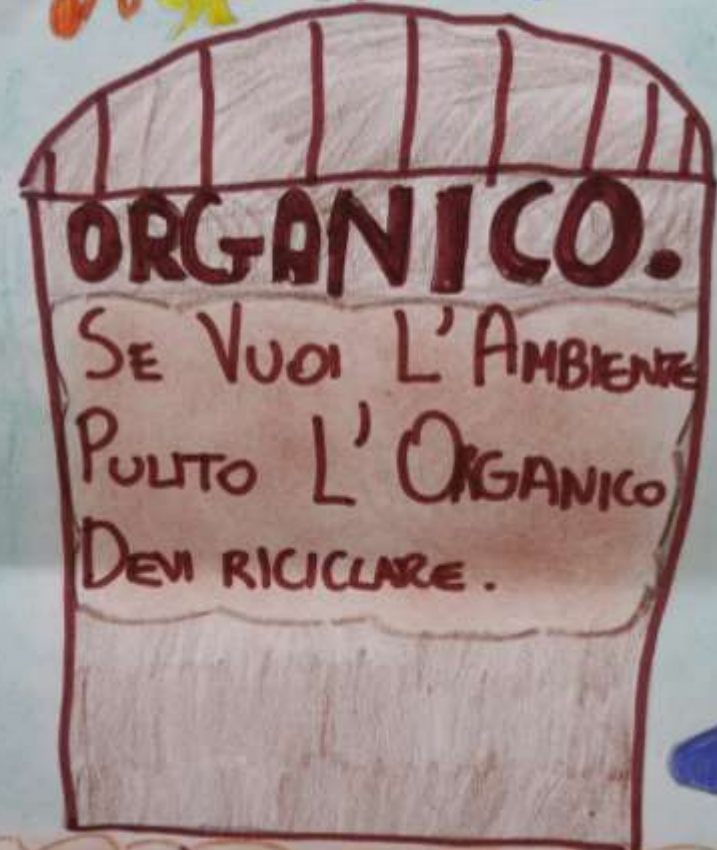 ORGANICO.
SE VUOI L'AMBIENTE
PULITO L'ORGANICO
DEVI RICICLARE.